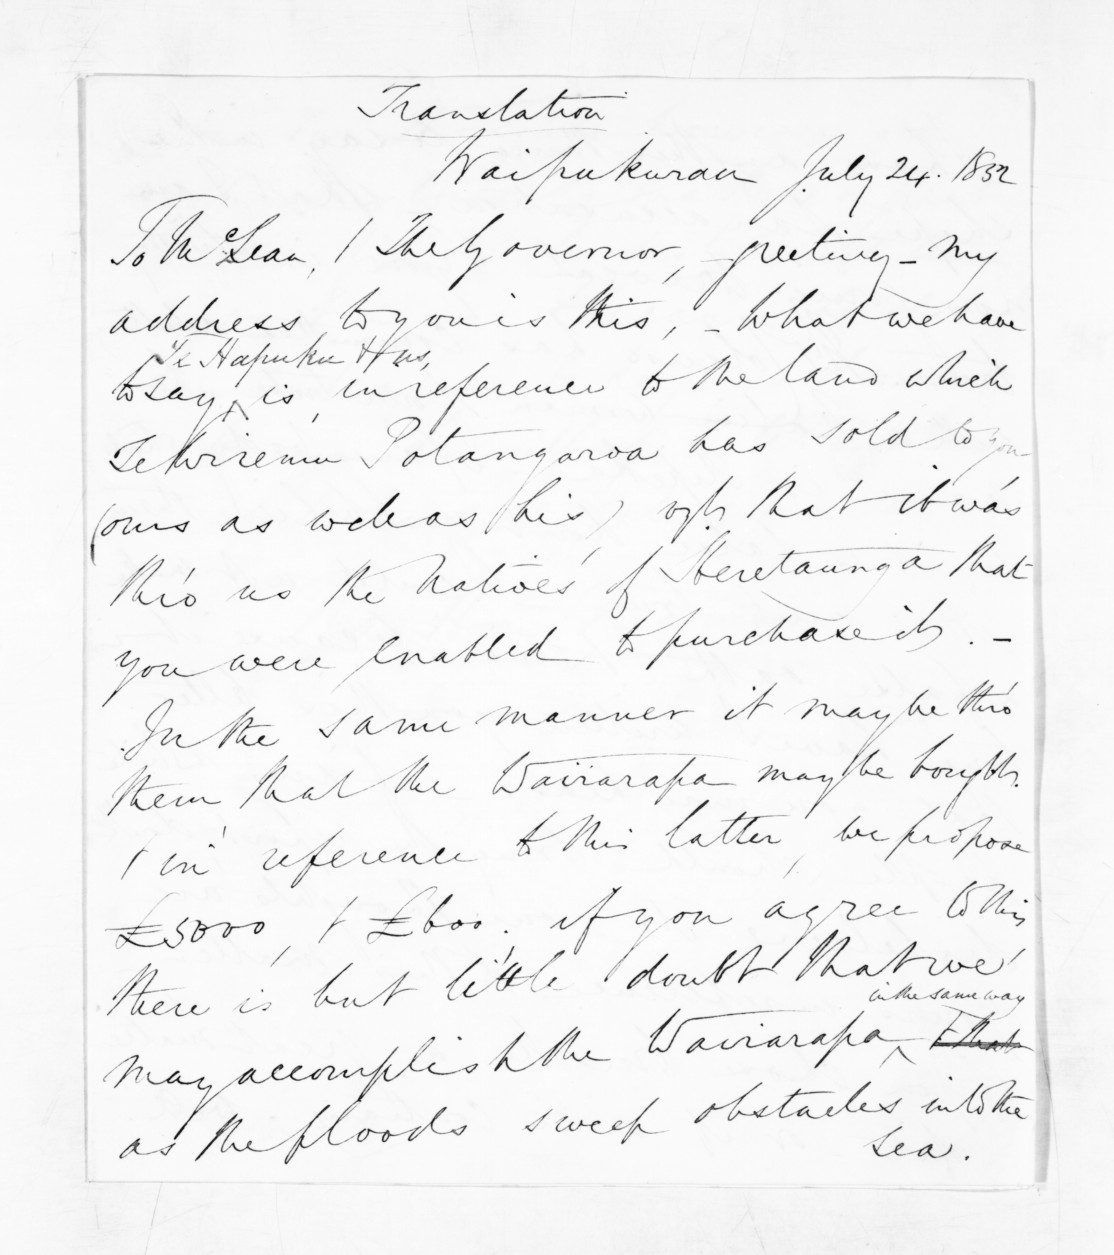 Translation
Waipukurau July 24. 1852
To McLean, / The Governor, - greeting - My
address to you is this, - What we have
Te Hapuku & us,
to say is in reference to the land which
Te Wiremu Potangaroa has sold to you -
(ours as well as his) that it was
thro us the Natives of Heretaunga that
you were enabled to purchase it. -
In the same manner it may be thro
them that the Wairarapa may be bought.
& in reference to this latter, we propose
£5000, & £600. if you agree to this
there is but little doubt that we
in the same way
may accomplish the Wairarapa
as the floods sweep obstacles into the
sea.